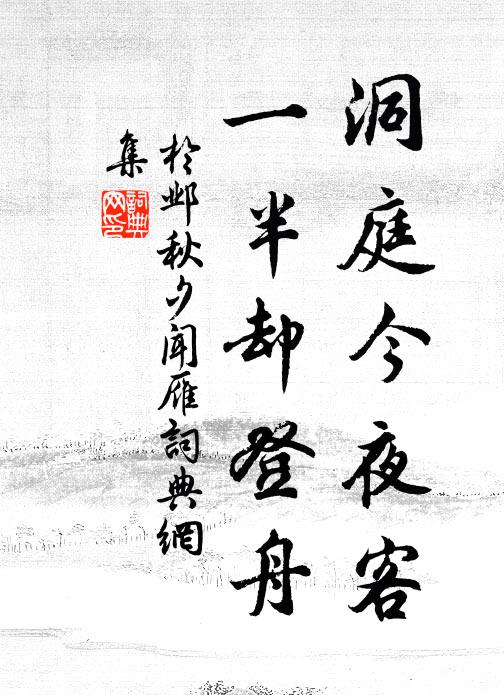 洞庭今夜客
一半却登舟
於邺秋夕闻雁詞典網
集
詞典
网印